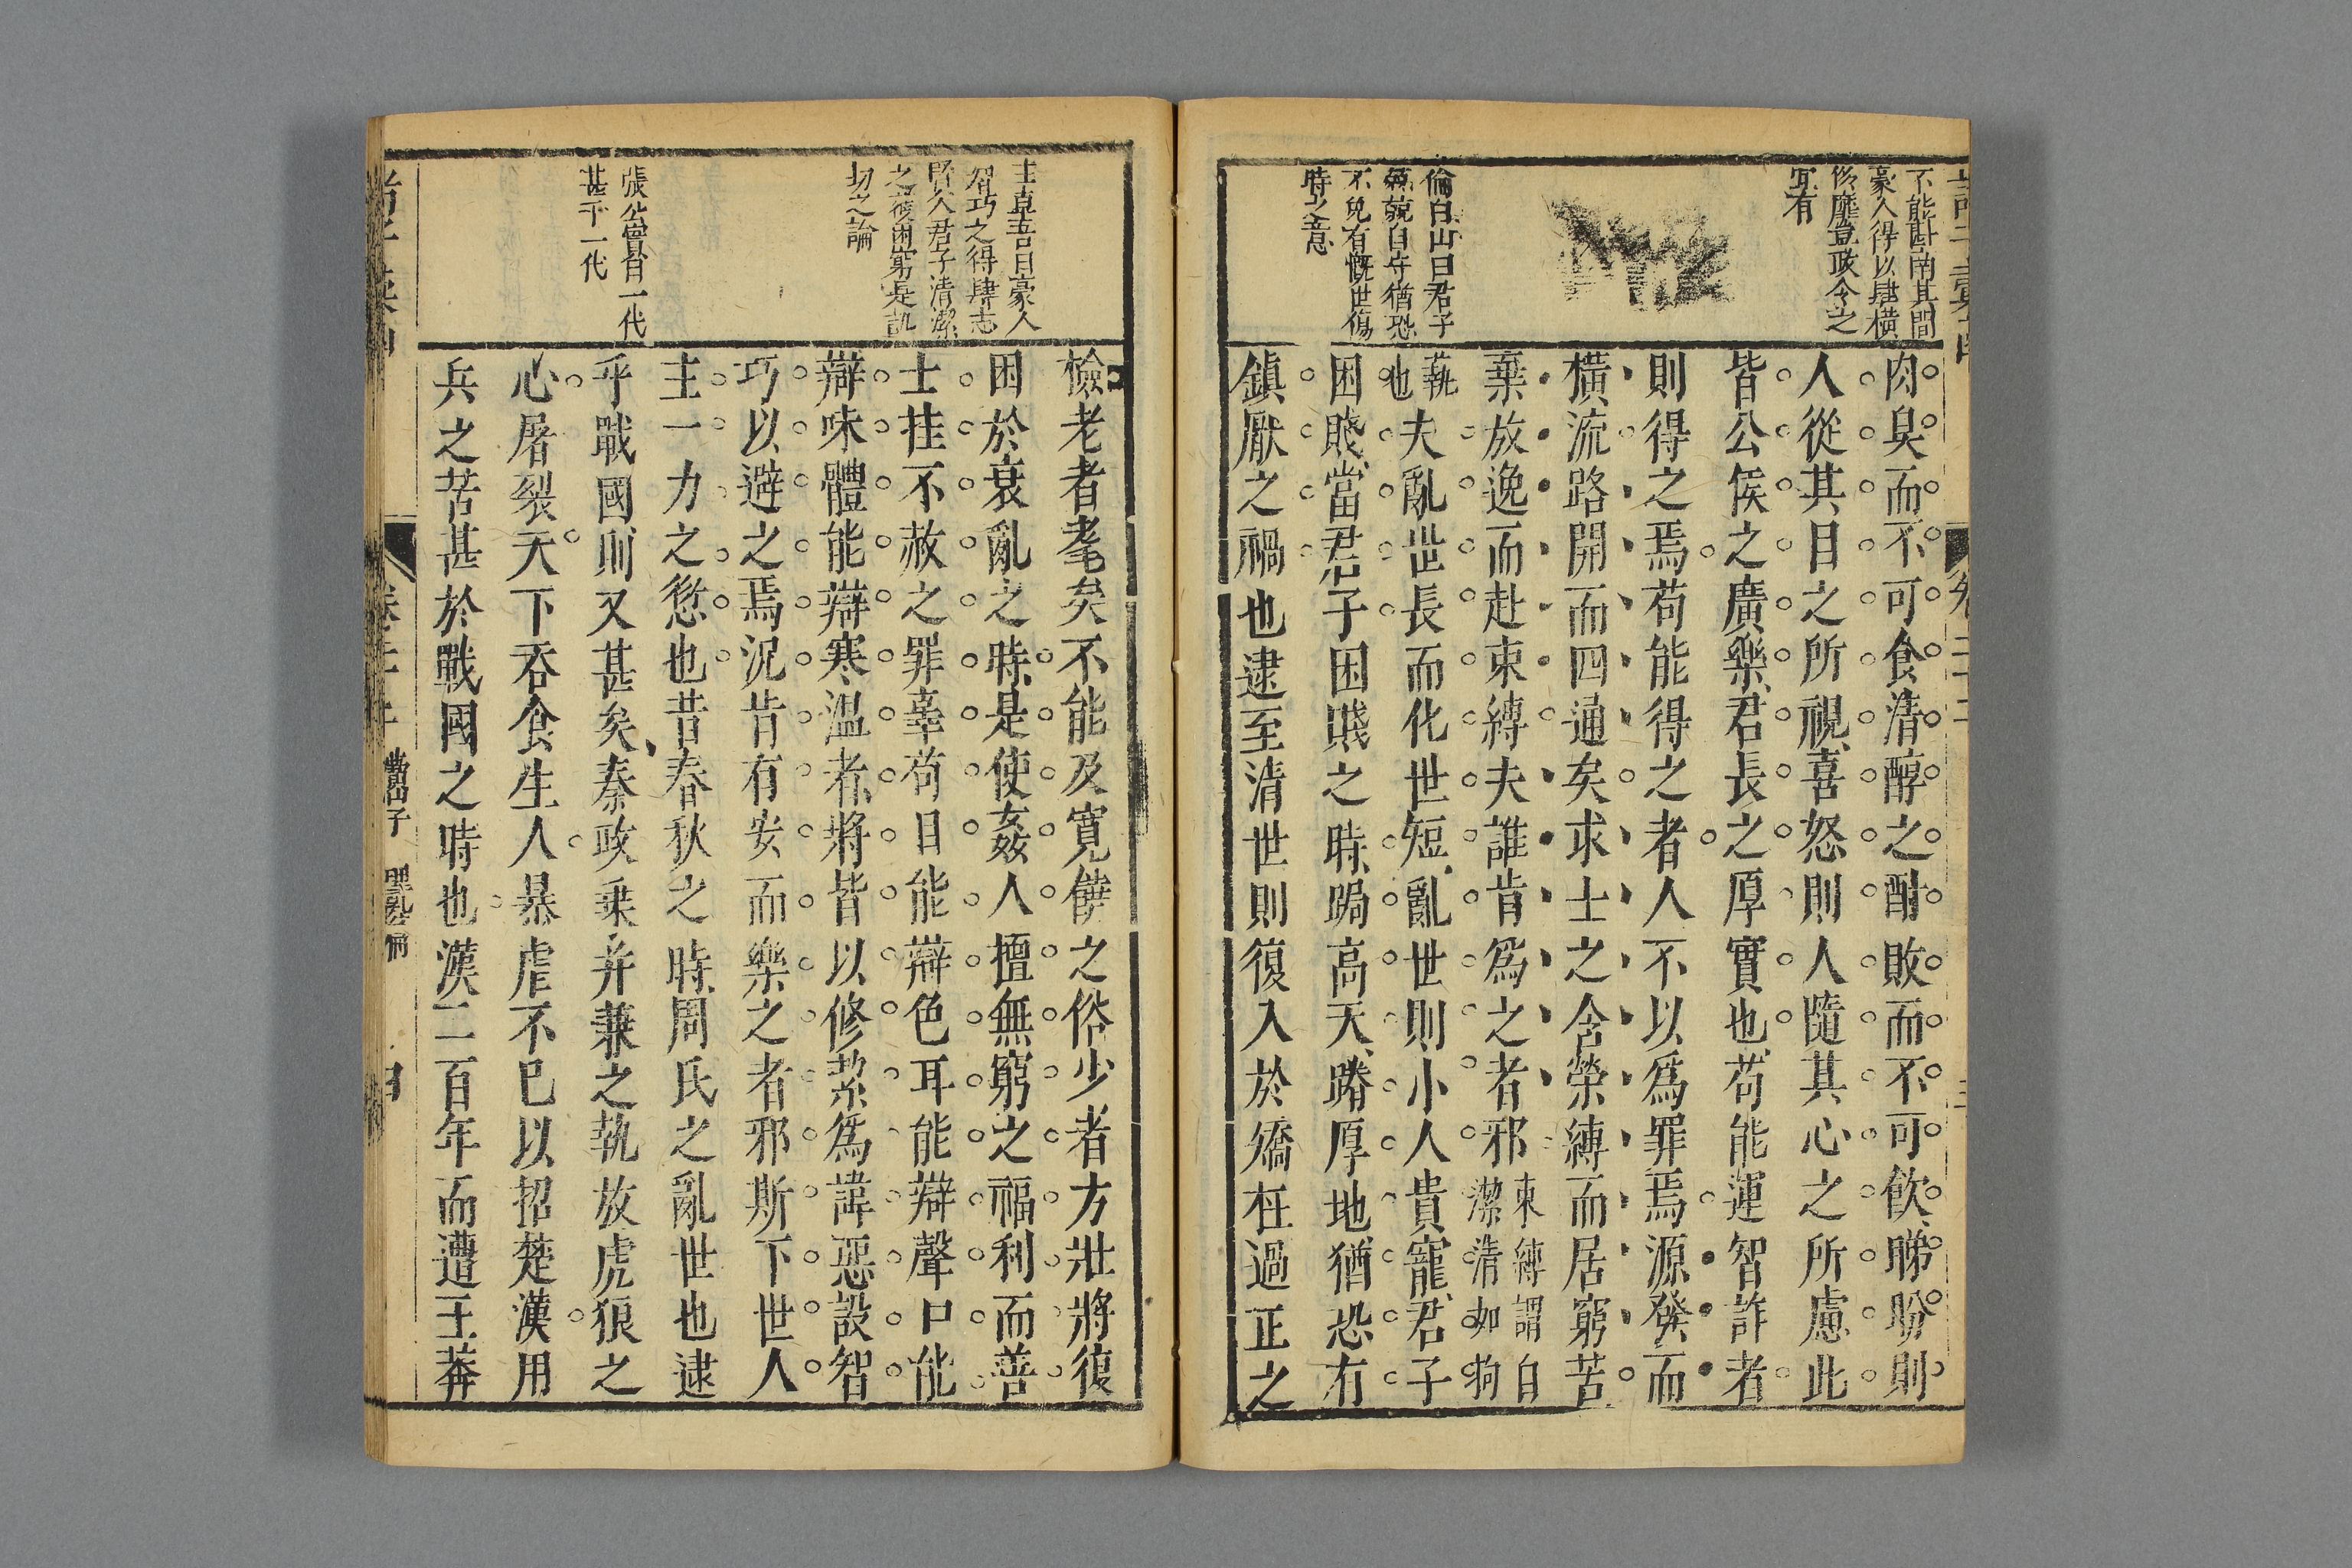 不能斟酌其間
豪人得以肆橫
侈靡豈政令之
冝有
倫白山曰君子
兢兢自守猶恐
不免有慨世傷
時之意
肉臭而不可食清醇之酎敗而不可飲睇盼則
人從其目之所視喜怒則人隨其心之所慮此
皆公侯之廣樂君長之厚實也苟能運智詐者
則得之焉苟能得之者人不以爲罪焉源發而
橫流路開而四通矣求士之舍榮縛而居窮苦
棄放逸而赴束縛夫誰肯爲之者邪束縛謂自
潔清如拘
執也夫亂世長而化世短亂世則小人貴寵君子
困賤當君子困賤之時跼高天蹐厚地猶恐有
鎮厭之禍也逮至清世則復入於矯枉過正之
卷二十二
三
王真吾曰豪人
智巧之得肆志
賢人君子清潔
之士彼困窮是訊
切之論
張公嘗曰一代
甚于一代
檢老者耄矣不能及寬饒之俗少者方壯將復
困於衰亂之時是使姦人擅無窮之福利而善
士挂不赦之罪辜苟目能辯色耳能辯聲口能
辯味體能辯寒溫者將皆以修絜爲諱惡設智
巧以避之焉況肯有安而樂之者邪斯下世人
主一力之愆也昔春秋之時周氏之亂世也逮
乎戰國則又甚矣秦政乘并兼之執放虎狼之
心屠裂天下吞食生人暴虐不已以招楚漢用
兵之苦甚於戰國之時也漢二百年而遭王莽
理亂篇